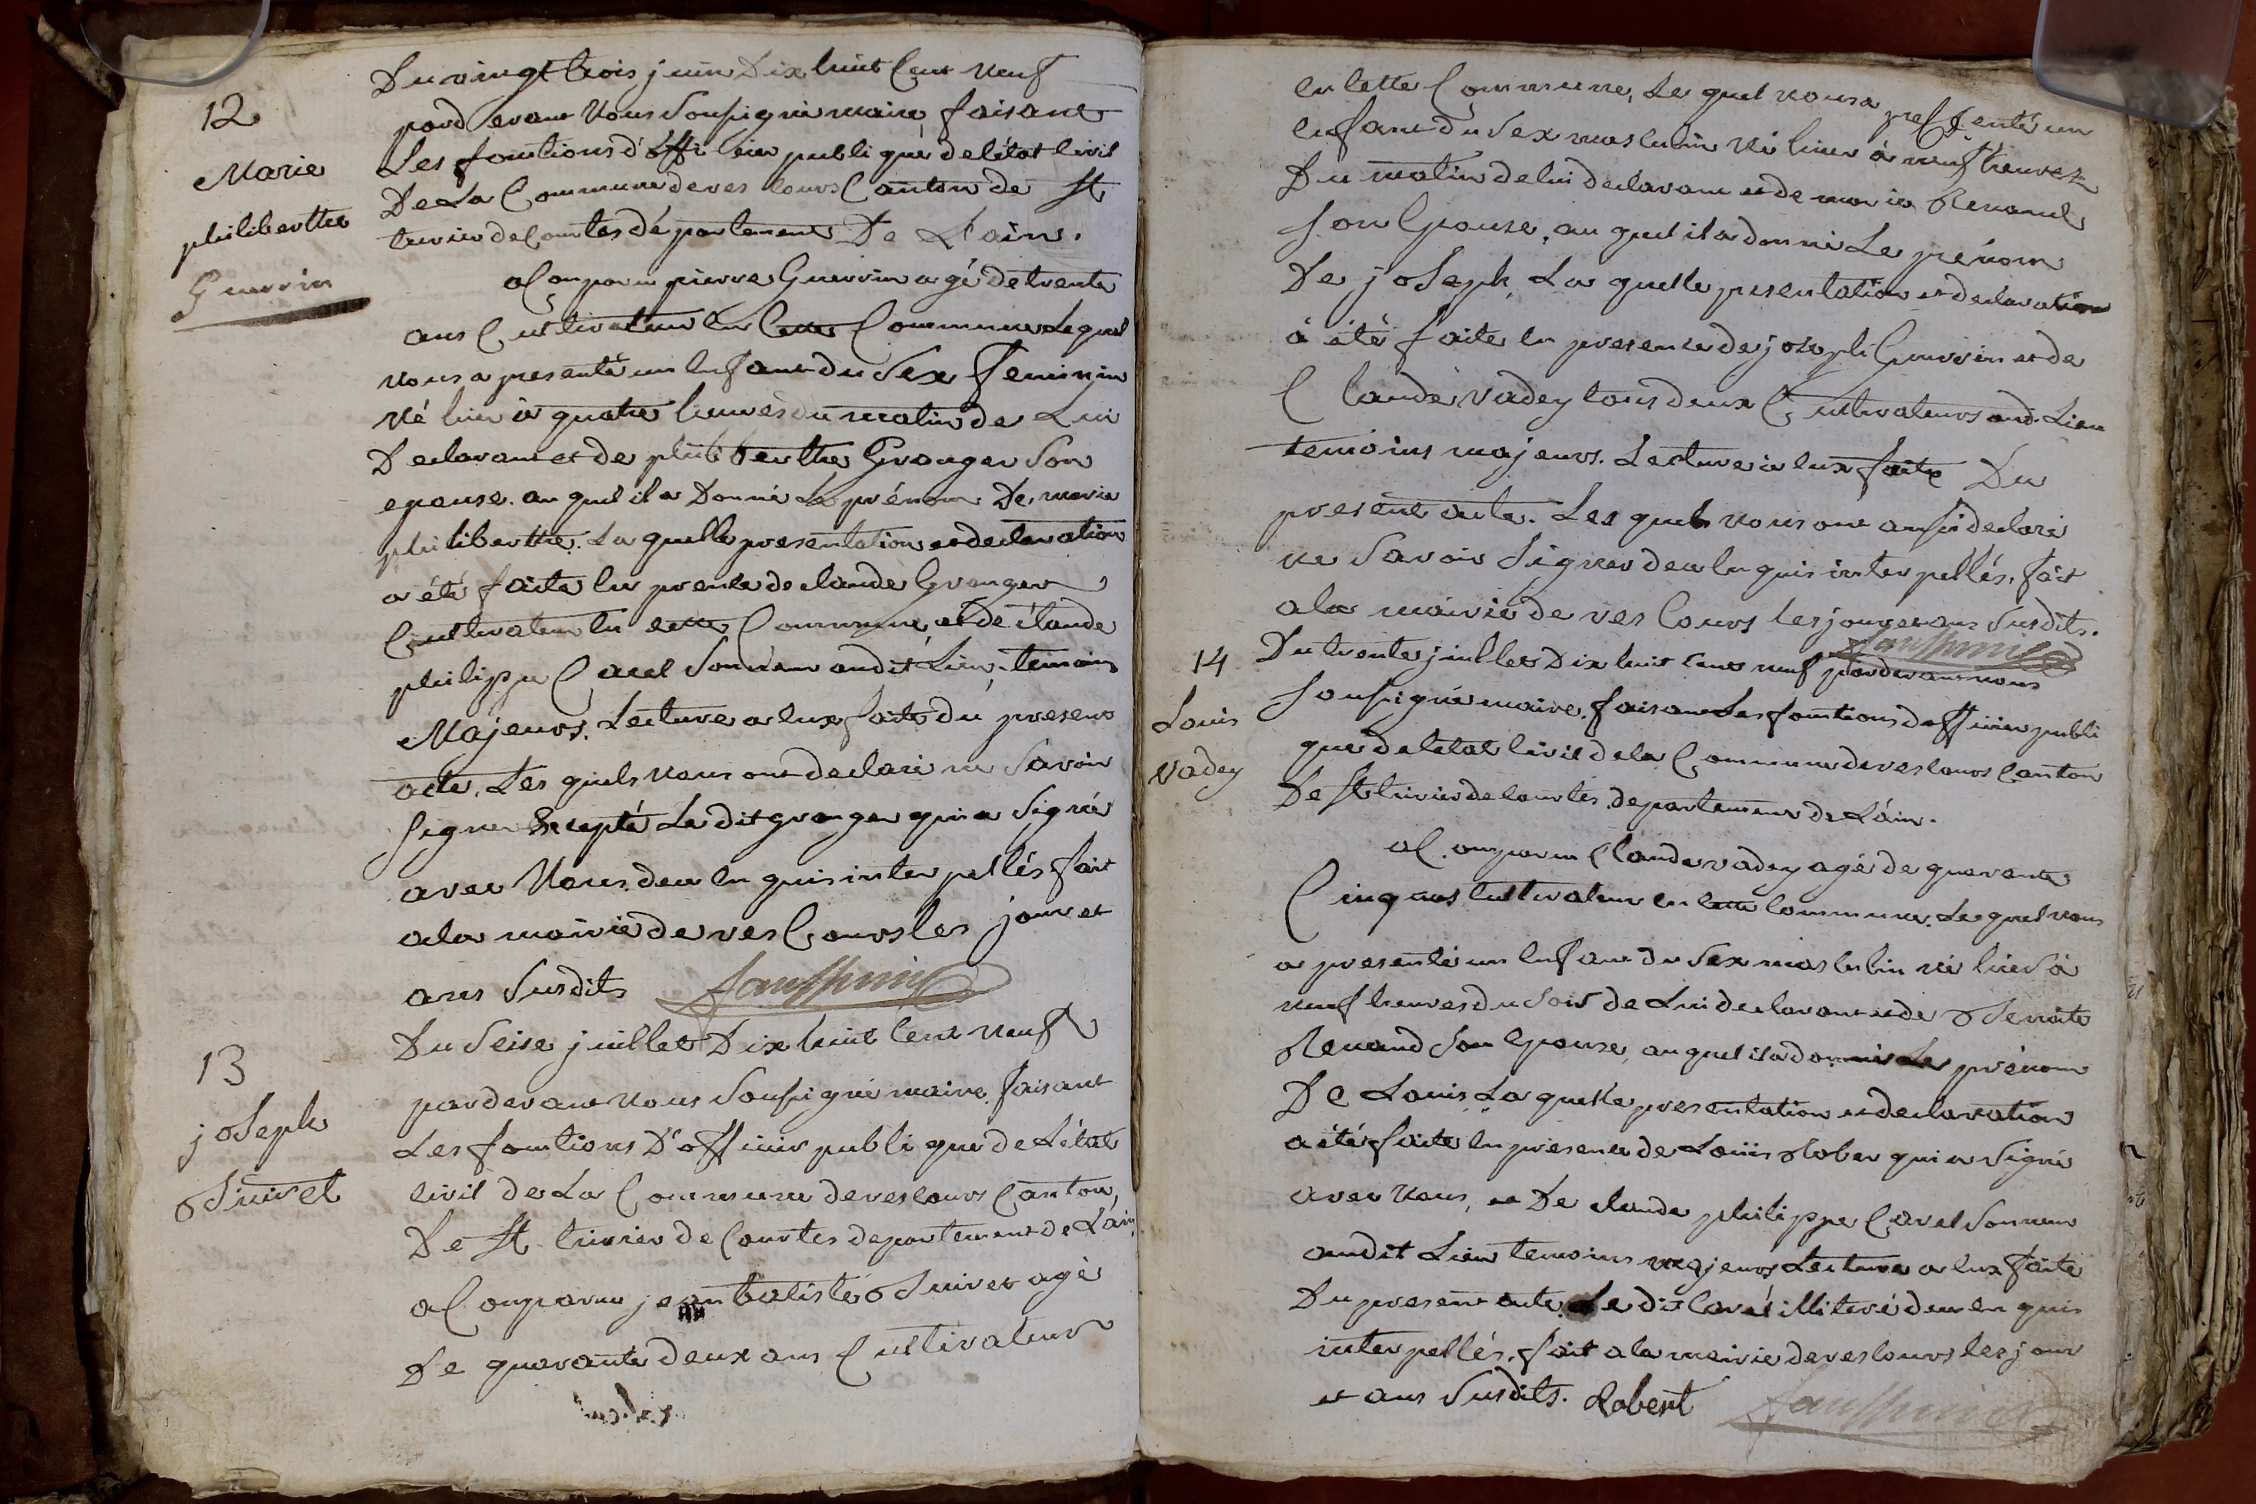 12
Marie
philiberthe
Guerrin
Du vingt trois juin Dix huit Cent Neuf
pard devant Nous Soussigné maire, faisant
Les fonctions d'officier publique de létat Civil
De La Commune de vescours Canton de St
trivier de Courtes département De L'ain.
a Comparu pierre Guerrin agé de trente
ans Cultivateur en Cette Commune Lequel
nous a presenté un enfant du Sex Feminin
Né hier à quatre heures du matin de Lui
Declarant et de philiberthe Granger Son
epouse. au quel il a Donné Le prénom De marie
philiberthe. La quelle presentation et declaration
a été faite en presence de claude Granger
Cultivateur en cette Commune, et de claude
philippe Cavel Sonneur audit Lieu, temoins
Majeurs. Lecture a eux faite du present
acte, Les quels nous ont declaré ne Savoir
Signer Excepté Le dit granger qui a Signé
avec Nous. deu en quis inter pellés fait
a la mairie de ves Cours les jour et
ans Susdits
13
joseph
Suivet
Du Seise juillet Dix huit Cent Neuf
par devant nous Soussigné maire, faisant
Les fonctions D'officier publi que de Létat
Civil de La Commune de vescours Canton,
De St. trivier de Courtes departement de L'ain
a Comparu jean batiste Suivet agé
De quarante deux ans Cultivateur
en Cette Commune, Le quel nous a presenté un
enfant du Sex masculin Né hier à neuf heures
Du matin de lui declarant et de marie Renaud
Son Epouse, au quel il a donné Le prénom
De joseph, La quelle presentation et declaration
a été faite en presence de joseph Guerrin et de
Claude Vadey tous deux Cultivateurs aud. Lieu
temoins majeurs. Lecture à eux faite Du
present acte. Les quels nous ont aussi declaré
ne Savoir Signer deu en quis inter pellés, fait
a la mairie de ves Cours les jour et ans Susdits.
14
Louis
Vadey
Du trente juillet Dix huit Cent neuf pardevant nous
Soussigné maire, faisant Les fonctions d'officier publi
que de létat Civil de la Commune de vescours Canton
De St trivier de Courtes, departement de L'ain.
a Comparu Claude vadey agé de quarante
Cinq ans Cultivateur en Cette Commune. Le quel nous
a presenté un enfant du Sex masculin né hier à
neuf heures du Soir de Lui declarant et de
Renaud Son Epouse, au quel il a donné Le prénom
De Louis La quelle presentation et declaration
a été faite en presence de Louis Rober qui a Signé
avec nous, et De claude philippe Cavel Sonneur
audit Lieu temoins majeurs Lecture a eux faite
Du present acte, Le dit Cavel illiteré deu en quis
inter pellés, fait a la mairie de vescours les jour
et ans Susdits. Robert